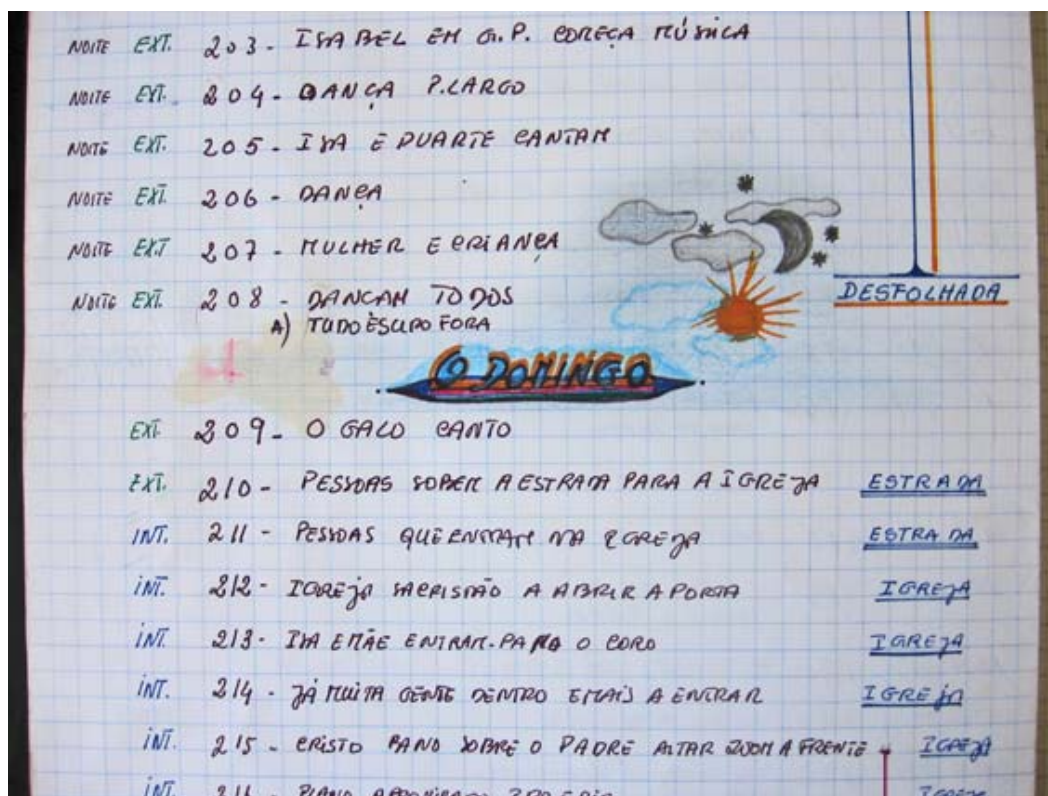 NOITE EXT. 203 - ISABEL EM G.P. COMEÇA MÚSICA
NOITE EXT. 204 - DANÇA P. LARGO
NOITE EXT. 205 - ISA E DUARTE CANTAM
NOITE EXT. 206 - DANÇA
NOITE EXT 207 - MULHER E CRIANÇA
NOITE EXT. 208 - DANCAM TODOS
A) TUDO ESCURO FORA
DESFOLHADA
O DOMINGO
EXT. 209 - O GALO CANTO
EXT. 210 - PESSOAS SOBEM A ESTRADA PARA A IGREJA ESTRADA
INT. 211 - PESSOAS QUE ENTRAM NA IGREJA ESTRADA
INT. 212 - IGREJA SACRISTÃO A ABRIR A PORTA IGREJA
INT. 213 - ISA E MÃE ENTRAM. PARA O CORO IGREJA
INT. 214 - JÁ MUITA GENTE DENTRO E MAIS A ENTRAR IGREJA
INT. 215 - CRISTO PANO SOBRE O PADRE ALTAR ZOOM A FRENTE IGREJA
INT. 216 - PLANO